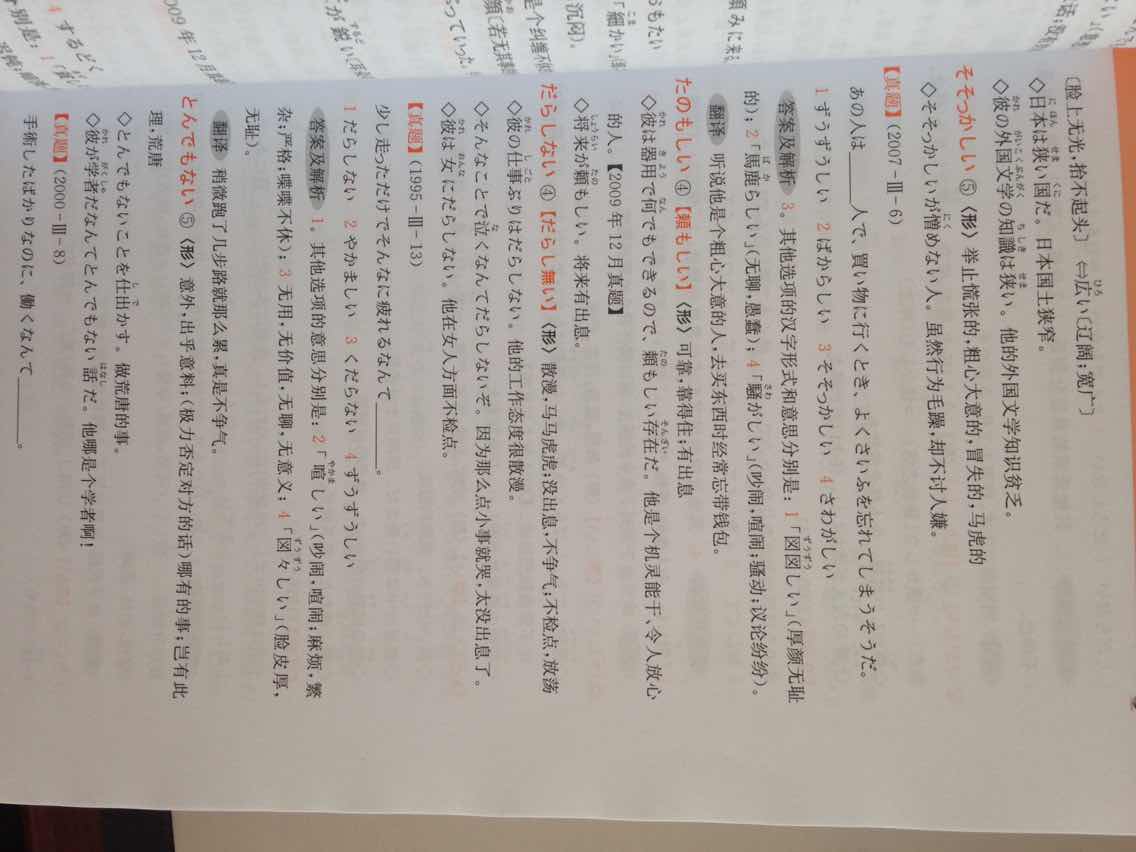 〔脸上无光，抬不起头〕 ⇔広い〔辽阔；宽广〕
◇日本は狭い国だ。日本国土狭窄。
◇彼の外国文学の知識は狭い。他的外国文学知识贫乏。
そそっかしい ⑤〈形〉举止慌张的，粗心大意的，冒失的，马虎的
◇そそっかしいが憎めない人。虽然行为毛躁，却不讨人嫌。
【真题】(2007-Ⅲ-6)
あの人は______人で、買い物に行くとき、よくさいふを忘れてしまうそうだ。
1 ずうずうしい 2 ばからしい 3 そそっかしい 4 さわがしい
答案及解析 3。其他选项的汉字形式和意思分别是：1「図図しい」(厚颜无耻
的)；2「馬鹿らしい」(无聊，愚蠢)；4「騒がしい」(吵闹，喧闹；骚动；议论纷纷)。
翻译 听说他是个粗心大意的人，去买东西时经常忘带钱包。
たのもしい ④【頼もしい】〈形〉可靠，靠得住；有出息
◇彼は器用で何でもできるので、頼もしい存在だ。他是个机灵能干、令人放心
的人。【2009年12月真题】
◇将来が頼もしい。将来有出息。
だらしない ④【だらし無い】〈形〉散漫，马马虎虎；没出息，不争气；不检点，放荡
◇彼の仕事ぶりはだらしない。他的工作态度很散漫。
◇そんなことで泣くなんてだらしないぞ。因为那么点小事就哭，太没出息了。
◇彼は女にだらしない。他在女人方面不检点。
【真题】(1995-Ⅲ-13)
少し走っただけでそんなに疲れるなんて______。
1 だらしない 2 やかましい 3 くだらない 4 ずうずうしい
答案及解析 1。其他选项的意思分别是：2「喧しい」(吵闹，喧闹；麻烦，繁
杂；严格；喋喋不休)；3 无用，无价值，无聊，无意义；4「図々しい」(脸皮厚，
无耻)。
翻译 稍微跑了几步路就那么累，真是不争气。
とんでもない ⑤〈形〉意外，出乎意料；(极力否定对方的话)哪有的事；岂有此
理，荒唐
◇とんでもないことを仕出かす。做荒唐的事。
◇彼が学者だなんてとんでもない話だ。他哪是个学者啊！
【真题】(2000-Ⅲ-8)
手術したばかりなのに、働くなんて______。